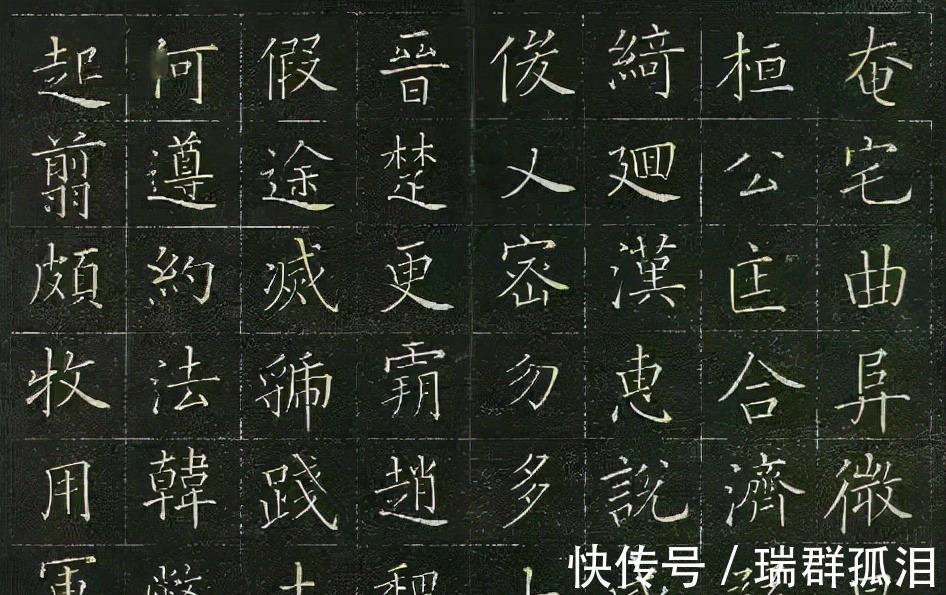 奄宅曲阜微
桓公匡合濟
綺廻漢惠説
俊乂密勿多
晉楚更霸趙
假途滅虢踐
何遵約法韓
起翦頗牧用軍
快传号 / 瑞群孤泪